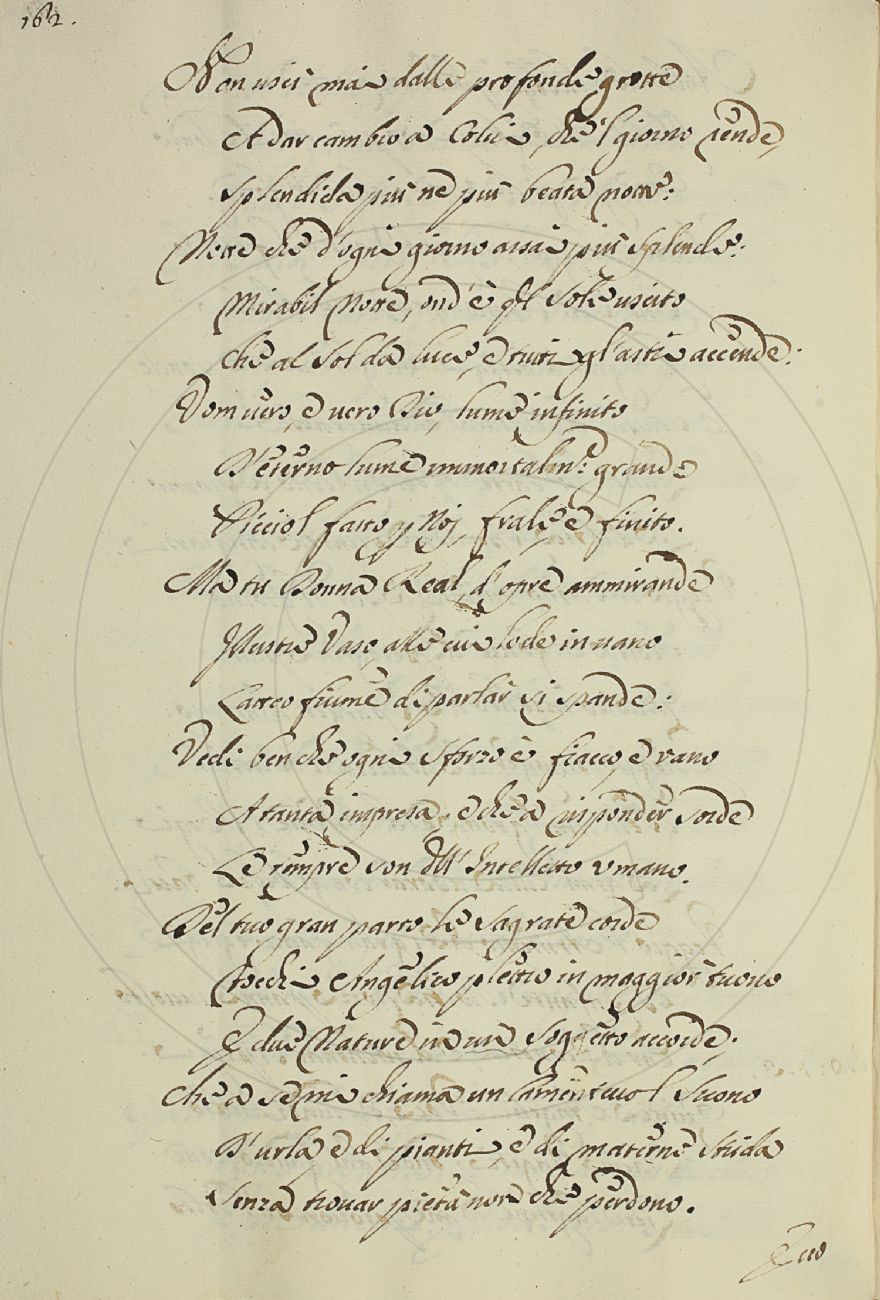 162.
Non uscì mai dalle profonde grotte
A dar cambio a Colui, che 'l giorno rende,
Splendida più ne più beata notte:
Notte che d'ogni giorno assai più splende:
Mirabil Notte, ond'è ql Sole uscito
Che al Sol dà luce, e tutti gl'astri accende:
Vom vero, e vero Dio, lume infinito
D'eterno lume immortalm.e grande
Picciol fatto p Noj, frale, e finito.
Ma tu Donna Real, d'opre ammirande
Illustre Vaso, alle cui lode in vano
Latteo fiume di parlar si spande:
Vedi ben che ogni sforzo è fiacco, e vano
A tanta impresa, e che a risponder sorde
Le tempre son dell'Intelletto vmano.
Del tuo gran parto le sagrate corde
Tocchi Angelico plettro in maggior tuono
E due Nature in un Soggetto accorde;
Che a se mi chiama un lamentevol Suono
D'urla, e di pianti, e di materne strida
Senza trovar pietà non che perdono.
Ecco